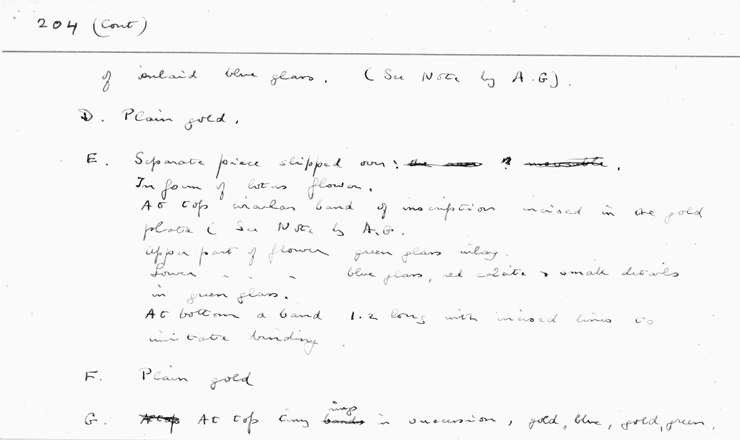 204 (Cont)
of inlaid blue glass. (See Note by A.G).
D. Plain gold.
E. Separate piece slipped over: the ? movable.
In form of lotus flower.
At top circular band of inscription incised in the gold
plate (See Note by A.G.
Upper part of flower green glass inlay.
Lower " " " blue glass, red calcite & small details
in green glass.
At bottom a band 1.2 long with incised lines to
imitate binding.
F. Plain gold
G. At top At top tiny bands rings in succession, gold, blue, gold, green,